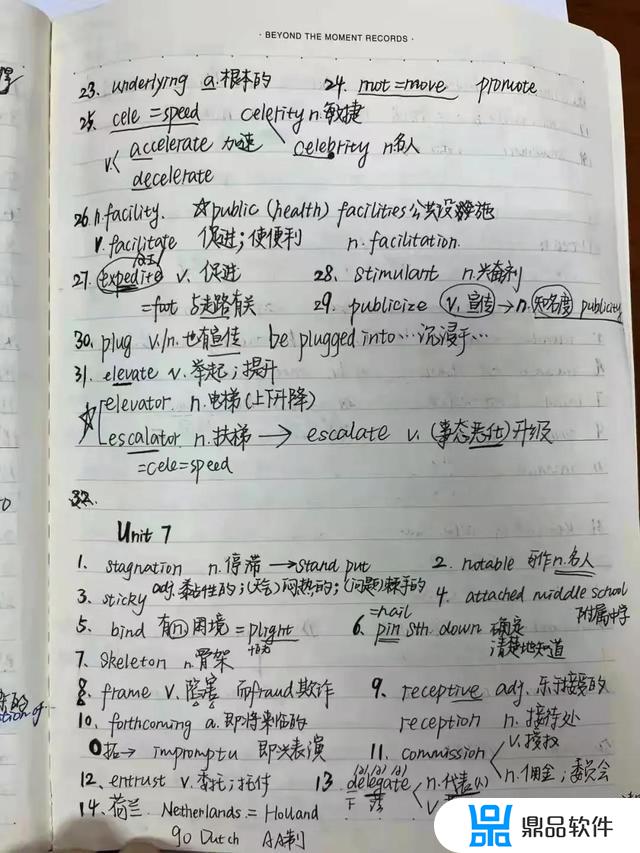 · BEYOND THE MOMENT RECORDS ·
23. underlying a.根本的 24. mot=move promote
25. cele=speed celerity n.敏捷
v. accelerate 加速 celebrity n.名人
decelerate
26. n.facility. ☆public (health) facilities公共设施
v.facilitate 促进;使便利 n.facilitation.
27. expedite v. 促进 28. stimulant n.兴奋剂
=foot 与走路有关 29. publicize v.宣传→n.知名度 publicity
30. plug v./n.也有宣传 be plugged into…沉浸于…
31. elevate v.举起;提升
☆elevator. n.电梯(上下升降)
escalator n.扶梯 → escalate v.(事态恶化)升级
=cele=speed
32.
Unit 7
1. stagnation n.停滞 →stand put 2. notable 可作n.名人
3. sticky adj.黏性的;(天气)闷热的;(问题)棘手的 4. attached middle school
附属中学
5. bind 有n困境=plight 6. pin sth. down 确定
=nail 清楚地知道
7. skeleton n.骨架
8. frame v.陷害 而fraud欺诈 9. receptive adj.乐于接受的
10. forthcoming a.即将来临的 reception n.接待处
→ impromptu 即兴表演 11. commission v.授权
n.佣金;委员会
12. entrust v.委托;托付 13. delegate n.代表(人)
下落 v.
14. 荷兰 Netherlands = Holland
go Dutch AA制
鼎品软件